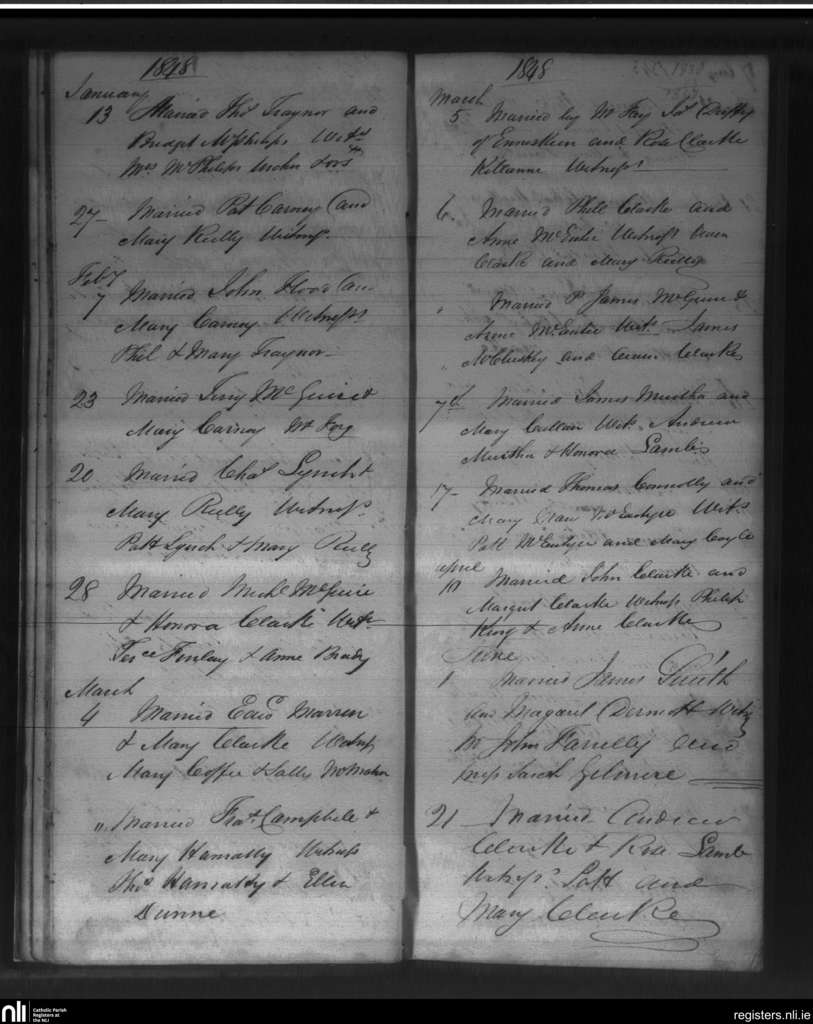 1848
January
13 Married Thos Traynor and
Bridget McPhilips Wits
Mrs McPhilips &
27 Married Pat Carney and
Mary Reilly Witness
Feby
7 Married John Flood and
Mary Carney Witnesses
Phil & Mary Traynor
23 Married Terry McGuire &
Mary Carney
20 Married Chas Lynch &
Mary Reilly Witness
Patt Lynch & Mary Reilly
28 Married Michl McGuire
& Honora Clarke Wits
Finlay & Anne Brady
March
4 Married Edwd Marren
& Mary Clarke Witness
Mary Coffee & Sally McMahon
" Married Campbell &
Mary Hanratty Witness
Thos Hanratty & Ellen
Dunne
1848
March
5 Married by Mr Fay Duffy
of Enniskeen and Rose Clarke
Witness
6 Married Phill Clarke and
Anne McEntee Witness Owen
Clarke and Mary Reilly
" Married James McGuire &
Anne McEntee Wits James
McCluskey and Clarke
7th Married James Murtha and
Mary Cullen Wits Andrew
Murtha & Honora Lamb
17 Married Thomas Connolly and
Mary McEntyre Wits
Patt McEntyre and Mary Coyle
April
10 Married John Clarke and
Margret Clarke Witness Philip
King & Anne Clarke
June
1 Married James Smith
and Magaret Dermott Witns
Mr John Farrelly and
Miss Sarah Gilmore
21 Married Andrew
Clarke & Rose Lamb
Witness Patt and
Mary Clarke
nli
Catholic Parish
Registers at
the NLI
registers.nli.ie